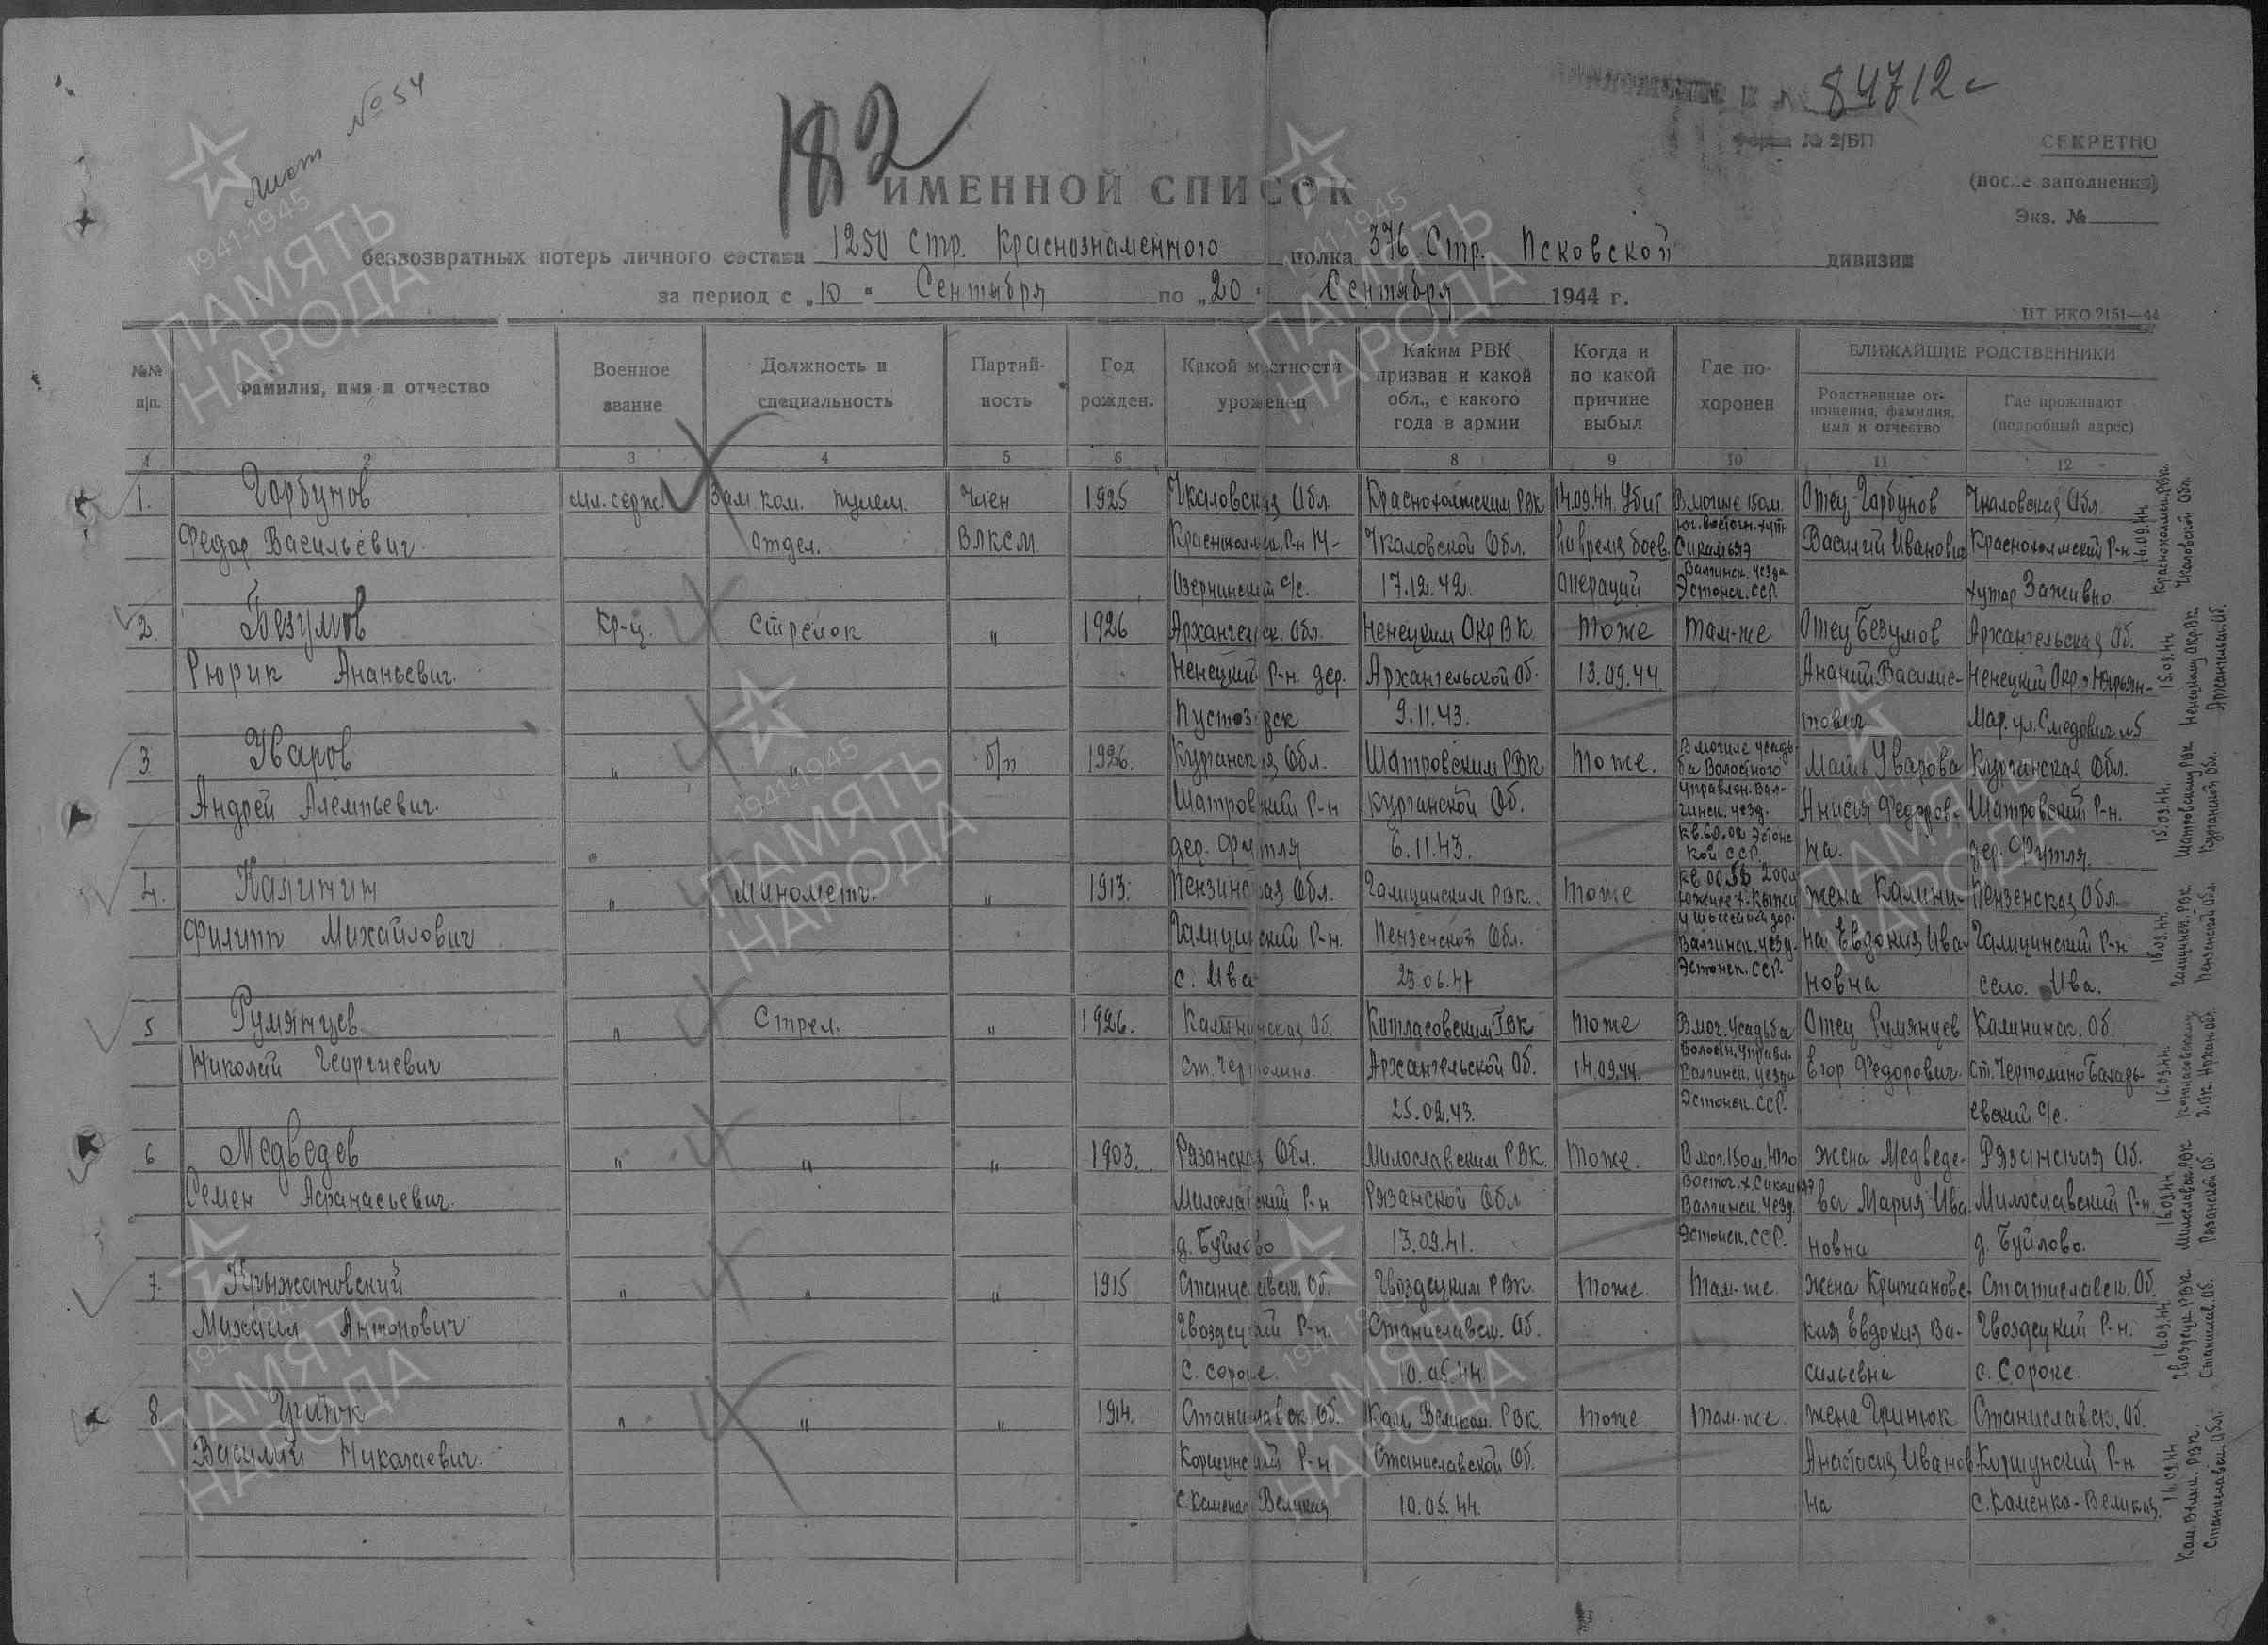 Лист № 54
182
84712с
Форма № 2/БП
СЕКРЕТНО
(после заполнения)
Экз. №
ИМЕННОЙ СПИСОК
безвозвратных потерь личного состава 1250 Стр. Краснознаменного полка 376 Стр. Псковской дивизии
за период с „10" Сентября по „20" Сентября 1944 г.
ЦТ НКО 2151—44
№№ п/п.
Фамилия, имя и отчество
Военное звание
Должность и специальность
Партийность
Год рожден.
Какой местности уроженец
Каким РВК призван и какой обл., с какого года в армии
Когда и по какой причине выбыл
Где похоронен
БЛИЖАЙШИЕ РОДСТВЕННИКИ
Родственные отношения, фамилия, имя и отчество
Где проживают (подробный адрес)
1 2 3 4 5 6 8 9 10 11 12
1. Горбунов мл. серж. Зам. ком. пулем. Член 1925 Чкаловская Обл. Краснохолмским РВК 14.09.44. Убит В могиле 150 м. Отец-Горбунов Чкаловская Обл.
Федор Васильевич отдел. ВЛКСМ Краснохолмск. Р-н Н- Чкаловской Обл. во время боев. Юг. Восточн. хут. Сикамяэ Василий Иванович Краснохолмский Р-н
Озернинский С/с. 17.12.42. операций Валгинск. уезда Эстонск. ССР. хутор Заживно.
2. Безумов Кр-ц. Стрелок " 1926 Архангельск. Обл. Ненецким Окр ВК. тоже там-же Отец Безумов Архангельская Об.
Рюрик Ананьевич. Ненецкий Р-н. дер. Архангельской Об. 13.09.44 Ананий Василис- Ненецкий Окр. г Нарьян-
Пустозерск 9.11.43. кович Мар. ул. Смидовича №5
3 Уваров " " б/п 1926. Курганская Обл. Шатровским РВК тоже. В могиле усадьба Волостного Мать Уварова Курганская Обл.
Андрей Алемпьевич. Шатровский Р-н Курганской Об. управлен. Валгинск. уезд. Анисия Федоров- Шатровский Р-н.
дер. Футля 6.11.43. кв. 60.02 Эстонской ССР. на. дер. Футля.
4. Калинин " Минометч. " 1913. Пензинская Обл. Галицинским РВК. тоже жена Калини- Пензенская Обл.
Филипп Михайлович Галицинский Р-н. Пензенской Обл. Валгинск. уезд. на Евдокия Ива- Галицинский Р-н.
с. Ива 23.06.41 Эстонск. ССР. новна село. Ива.
5 Румянцев " Стрел. " 1926. Калининская Об. Котласовским ГВК тоже В мог. усадьба Отец Румянцев Калининск. Об.
Николай Георгиевич ст. Чертолино. Архангельской Об. 14.09.44. Волостн. управл. Валгинск. уезда Егор Федорович. ст. Чертолино Бахарь-
25.02.43. Эстонск. ССР. евский С/с.
6 Медведев " " " 1903. Рязанская Обл. Милославским РВК. тоже. В мог. 150 м. Юго жена Медведе- Рязанская Об.
Семен Афанасьевич. Милославский Р-н Рязанской Обл Восточ. х. Сикамяэ Валгинск. уезд. ва Мария Ива- Милославский Р-н.
д. Буйлово 13.09.41. Эстонск. ССР. новна д. Буйлово.
7. Крыжановский " " " 1915 Станиславск. Об. Гвоздецким РВК. тоже. там-же. жена Крыжановс- Станиславск. Об.
Михаил Антонович Гвоздецкий Р-н. Станиславск. Об. кая Евдокия Ва- Гвоздецкий Р-н.
с. Сороке. 10.05.44. сильевна с. Сороке.
8 Гринюк " " " 1914. Станиславск. Об. Кам. Великом. РВК. тоже там-же. жена Гринюк Станиславск. Об.
Василий Николаевич. Коршунский Р-н Станиславской Об. Анастасия Иванов- Коршунский Р-н
с. Каменка Великая 10.05.44. на с. Каменка-Великая.
16.09.44. Краснохолмск. РВК. Чкаловской Обл.
15.09.44. Ненецкому ОКР.ВК. Архангельск. Об.
15.09.44. Шатровскому РВК Курганской Обл.
16.09.44. Галицинск. РВК. Пензенской Обл.
16.09.44. Котласовскому ГВК. Архан. Обл.
16.09.44 Милославск. РВК Рязанской Об.
16.09.44 Гвоздецк. РВК. Станислав. Об.
16.09.44 Кам. Велик. РВК. Станиславской Обл.
1941-1945
ПАМЯТЬ
НАРОДА
1941-1945
ПАМЯТЬ
НАРОДА
1941-1945
ПАМЯТЬ
НАРОДА
1941-1945
ПАМЯТЬ
НАРОДА
1941-1945
ПАМЯТЬ
НАРОДА
1941-1945
ПАМЯТЬ
НАРОДА